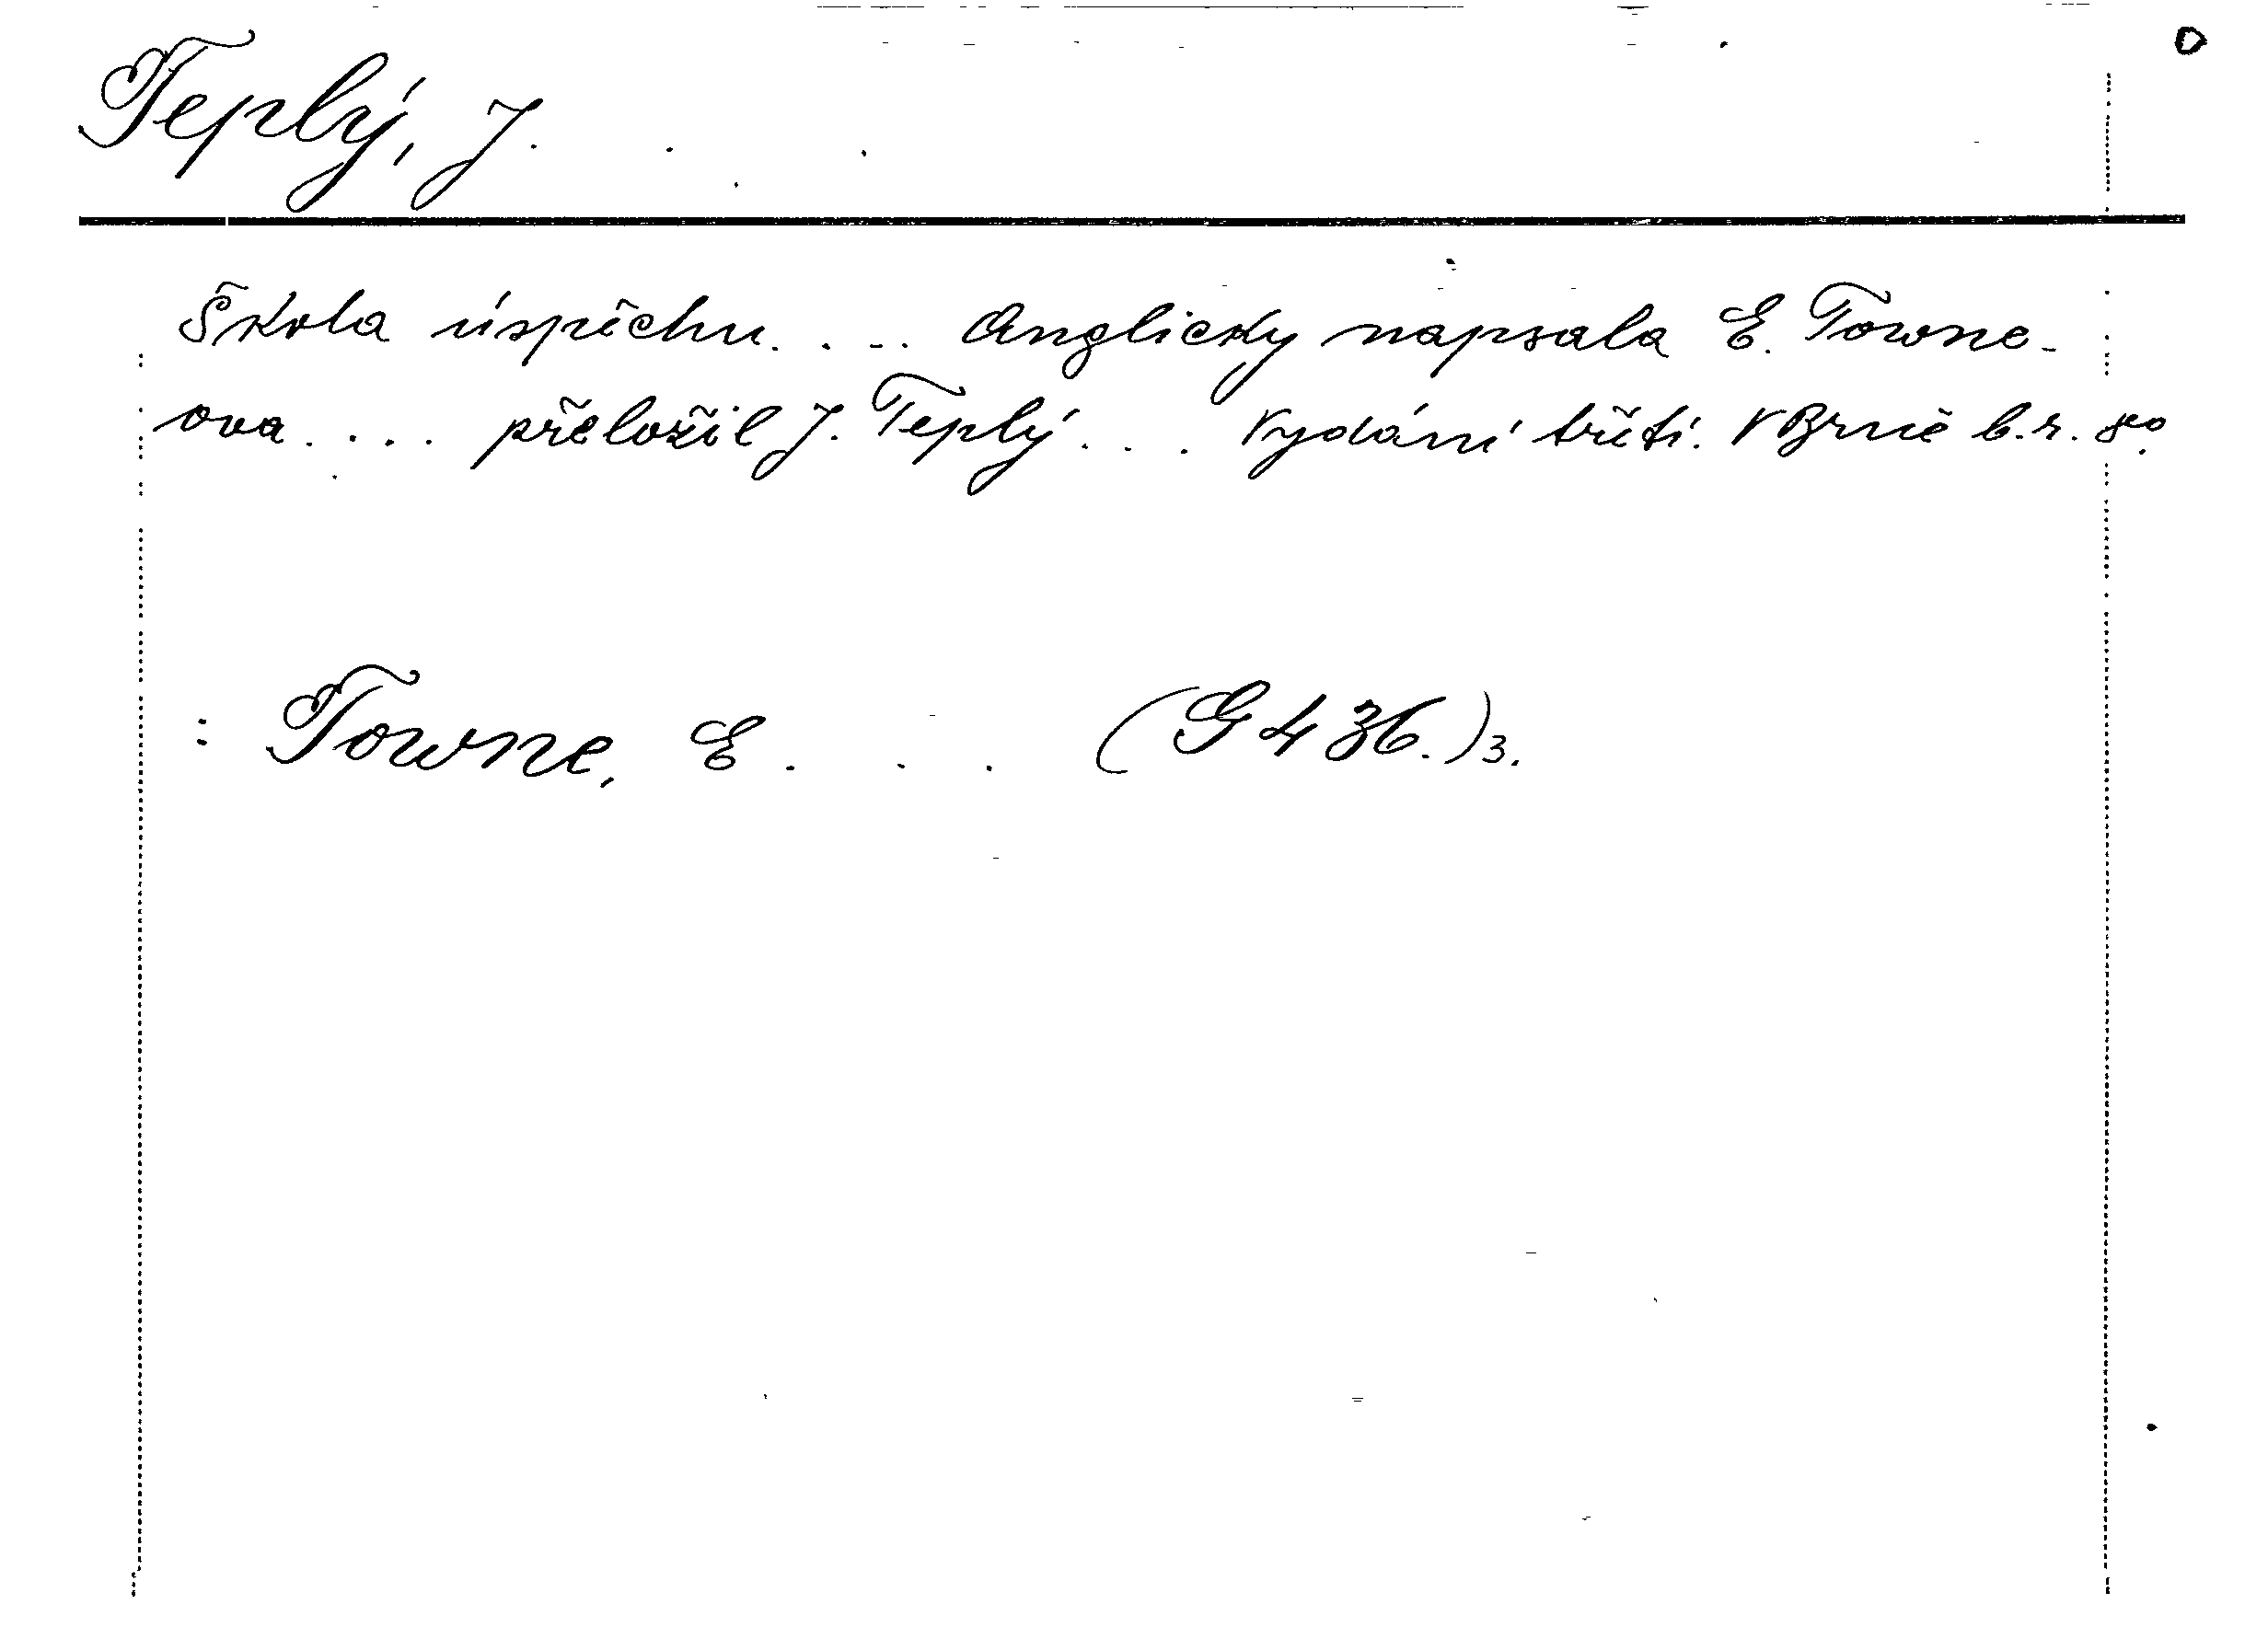 Teplý, J.
Škola úspěchu. . . . Anglicky napsala E. Towne-
ova. . . . přeložil J. Teplý. . . Vydání třetí. V Brně b. r. 8º.
: Towne, E. . . (G 436.)3.